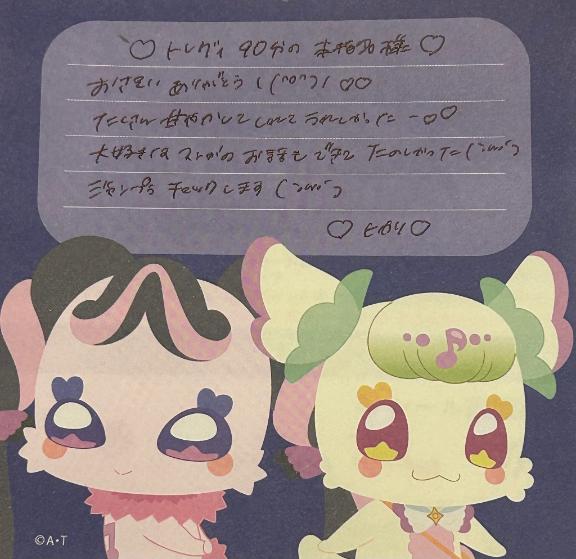 ♡ トレヴィ 90分の 本指名様 ♡
おさそい ありがとう！(^o^)/ ♡♡
たくさん 甘やかして くれて うれしかった ー♡♡
大好きな マンガの お話も できて たのしかった (´ω`)
ジャンプ+ チェックします (´ω`)
♡ ヒカリ ♡
©A・T